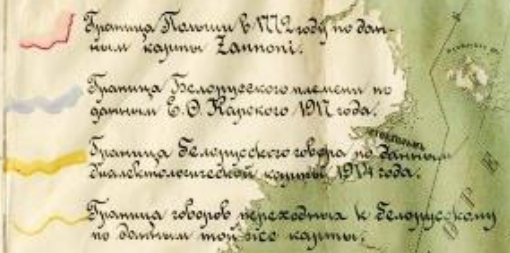 Граница Польши в 1772 году по дан-
ным карты Zannoni.
Граница Белорусского племени по
данным Е. Ѳ. Карского 1917 года.
Граница белорусского говора по данным
диалектологической карты 1914 года.
Граница говоров переходных к белорусскому
по данным той же карты.